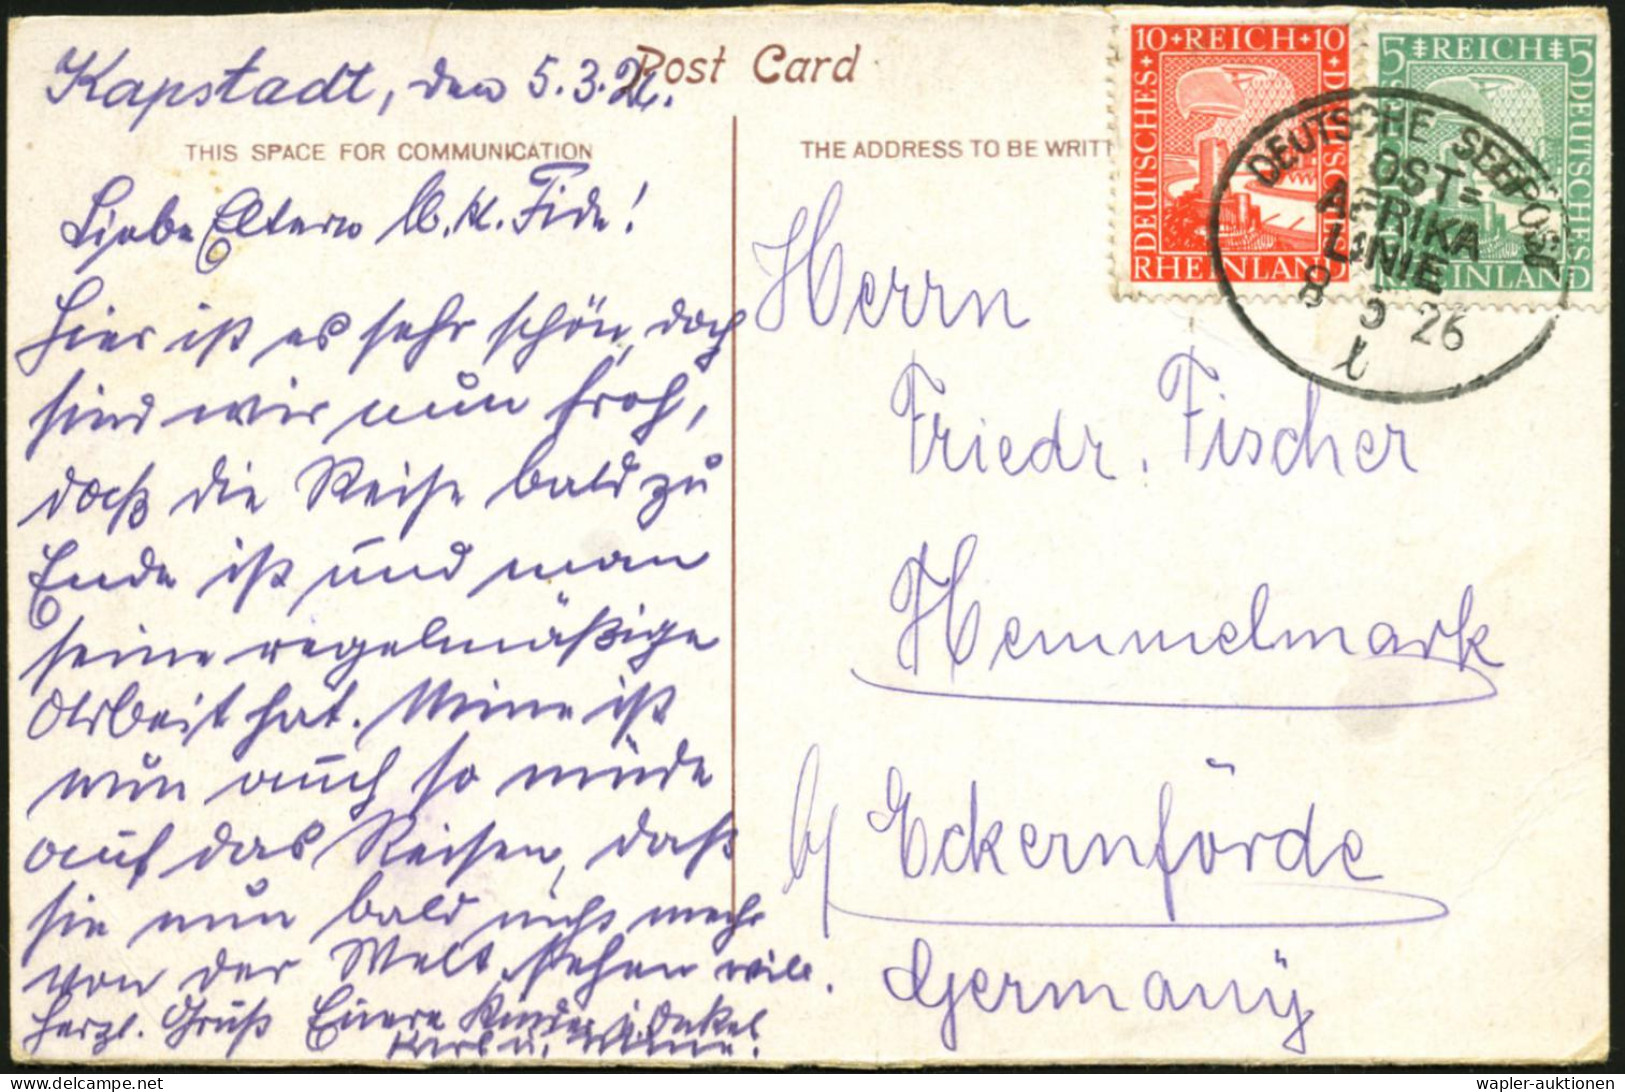 Post Card
Kapstadt, den 5.3.26.
THIS SPACE FOR COMMUNICATION
THE ADDRESS TO BE WRITT
Liebe Eltern u. kl. Fide!
Hier ist es sehr schön, doch
sind wir nun froh,
daß die Reise bald zu
Ende ist und man
seine regelmäßige
Arbeit hat. Minne ist
nun auch so müde
auf das Reisen, daß
sie nun bald nichs mehr
von der Welt sehen will.
Herzl. Gruß Euere Kinder u. Onkel
Karl u. Minne.
Herrn
Friedr. Fischer
Hemmelmark
b/ Eckernförde
Germany
10 REICH 10
DEUTSCHES
DEUTSCHES
RHEINLAND
5 REICH 5
DEUTSCHES
RHEINLAND
DEUTSCHE SEEPOST
OST=
AFRIKA
LINIE
8 3 26
l
wapler-auktionen